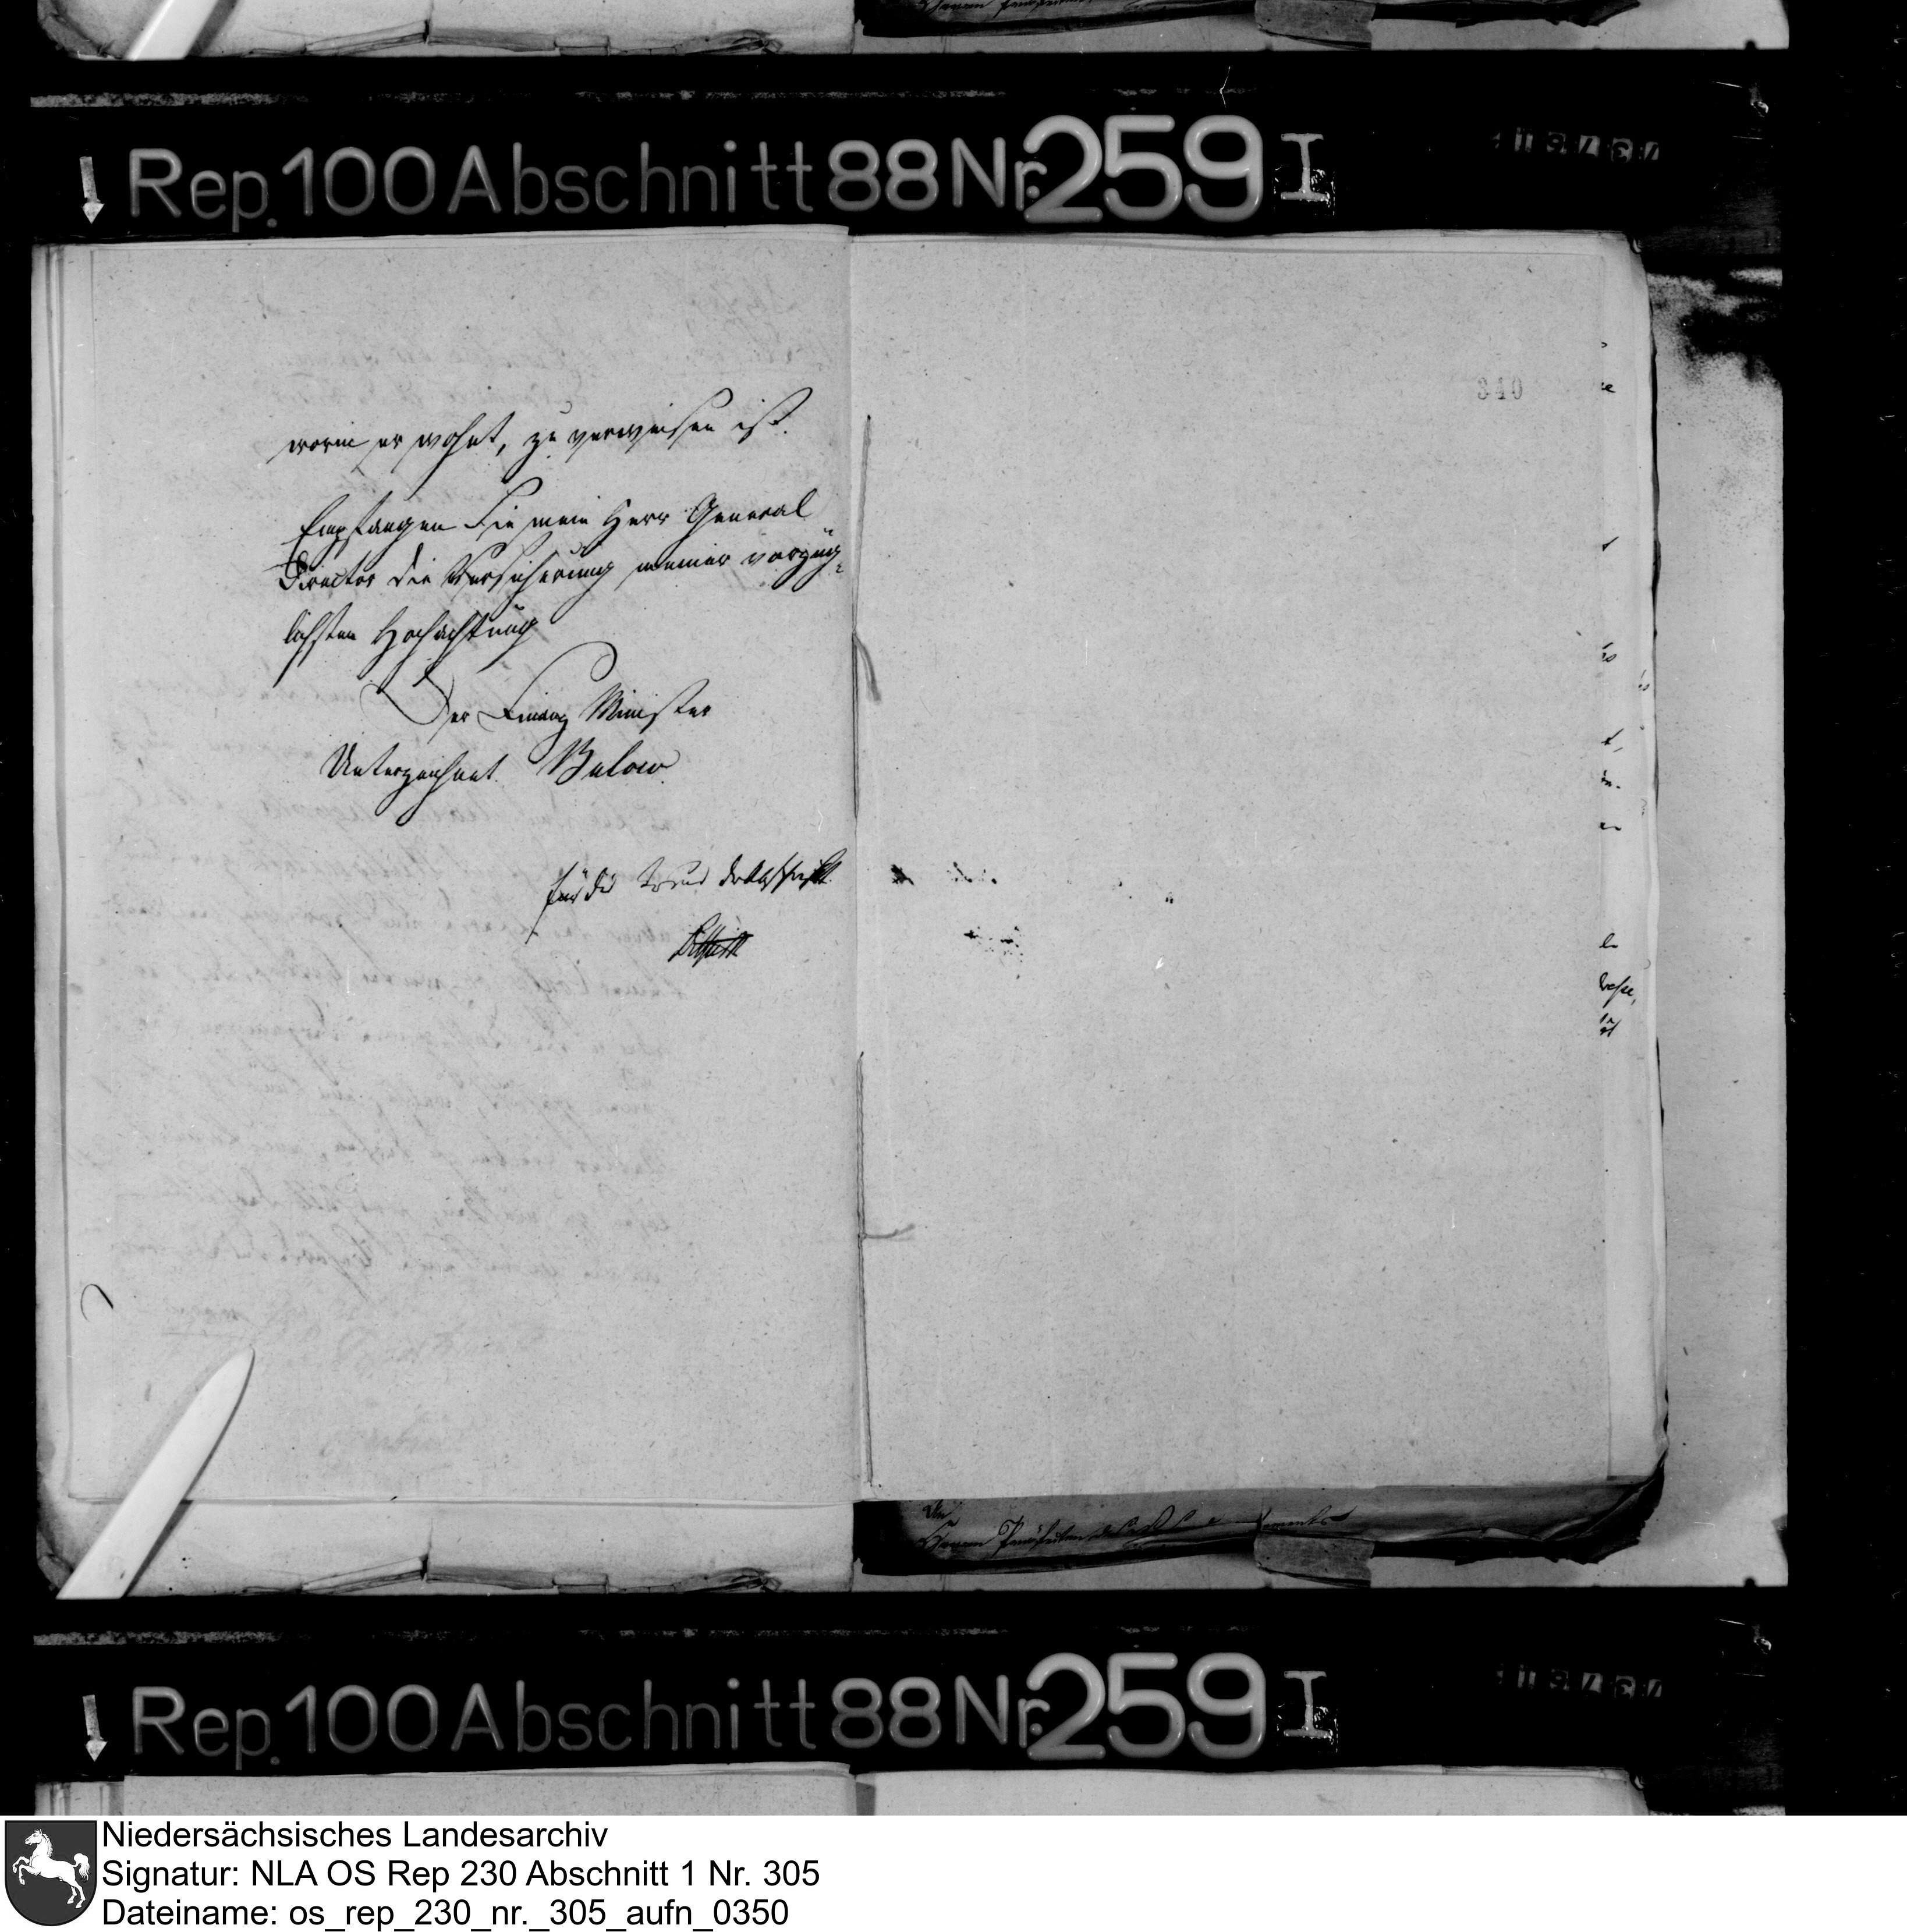 Rep. 100 Abschnitt 88 Nr. 259 I
340
worin er wohnt, zu verweisen ist.
Empfangen Sie mein Herr General
Director die Versicherung meiner vorzüg-
lichsten Hochachtung
Der Finanz Minister
Unterzeichnet Bulow
für die der Abschrift
An
Herrn Präfecten des
Rep. 100 Abschnitt 88 Nr. 259 I
Niedersächsisches Landesarchiv
Signatur: NLA OS Rep 230 Abschnitt 1 Nr. 305
Dateiname: os_rep_230_nr._305_aufn_0350